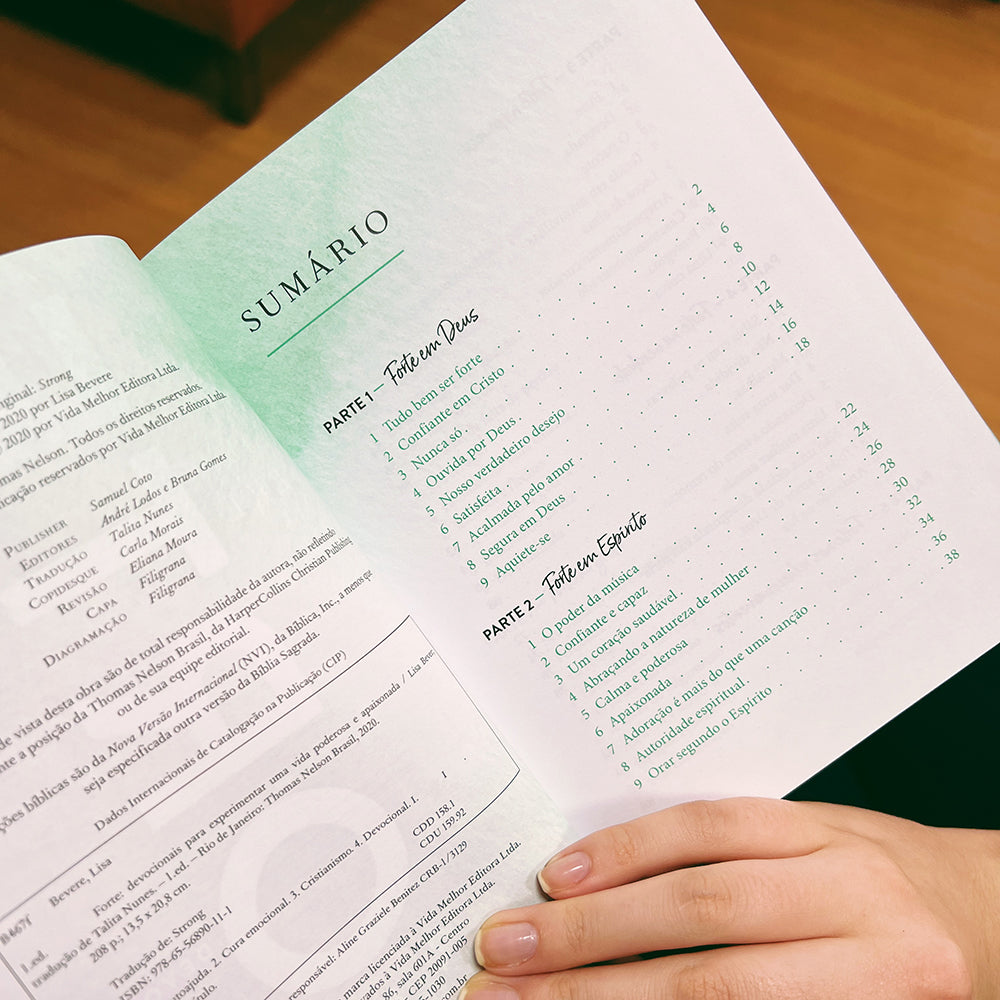 iginal: Strong
2020 por Lisa Bevere
2020 por Vida Melhor Editora Ltda.
mas Nelson. Todos os direitos reservados.
licação reservados por Vida Melhor Editora Ltda.
PUBLISHER Samuel Coto
EDITORES André Lodos e Bruna Gomes
TRADUÇÃO Talita Nunes
COPIDESQUE Carla Morais
REVISÃO Eliana Moura
CAPA Filigrana
DIAGRAMAÇÃO Filigrana
de vista desta obra são de total responsabilidade da autora, não refletindo
nte a posição da Thomas Nelson Brasil, da HarperCollins Christian Publishing
ou de sua equipe editorial.
ções bíblicas são da Nova Versão Internacional (NVI), da Bíblica, Inc., a menos que
seja especificada outra versão da Bíblia Sagrada.
Dados Internacionais de Catalogação na Publicação (CIP)
B467f Bevere, Lisa
1.ed. Forte: devocionais para experimentar uma vida poderosa e apaixonada / Lisa Bevere;
tradução de Talita Nunes. – 1.ed. – Rio de Janeiro: Thomas Nelson Brasil, 2020.
208 p.; 13,5 x 20,8 cm.
Tradução de: Strong
ISBN: 978-65-56890-11-1
utoajuda. 2. Cura emocional. 3. Cristianismo. 4. Devocional. I.
tulo.
CDD 158.1
CDU 159.92
responsável: Aline Graziele Benitez CRB-1/3129
marca licenciada à Vida Melhor Editora Ltda.
vados à Vida Melhor Editora Ltda.
86, sala 601A – Centro
CEP 20091-005
5-1030
om.br
SUMÁRIO
PARTE 1 – Forte em Deus
1 Tudo bem ser forte 2
2 Confiante em Cristo 4
3 Nunca só 6
4 Ouvida por Deus 8
5 Nosso verdadeiro desejo 10
6 Satisfeita 12
7 Acalmada pelo amor 14
8 Segura em Deus 16
9 Aquiete-se 18
PARTE 2 – Forte em Espírito
1 O poder da música 22
2 Confiante e capaz 24
3 Um coração saudável 26
4 Abraçando a natureza de mulher 28
5 Calma e poderosa 30
6 Apaixonada 32
7 Adoração é mais do que uma canção 34
8 Autoridade espiritual 36
9 Orar segundo o Espírito 38